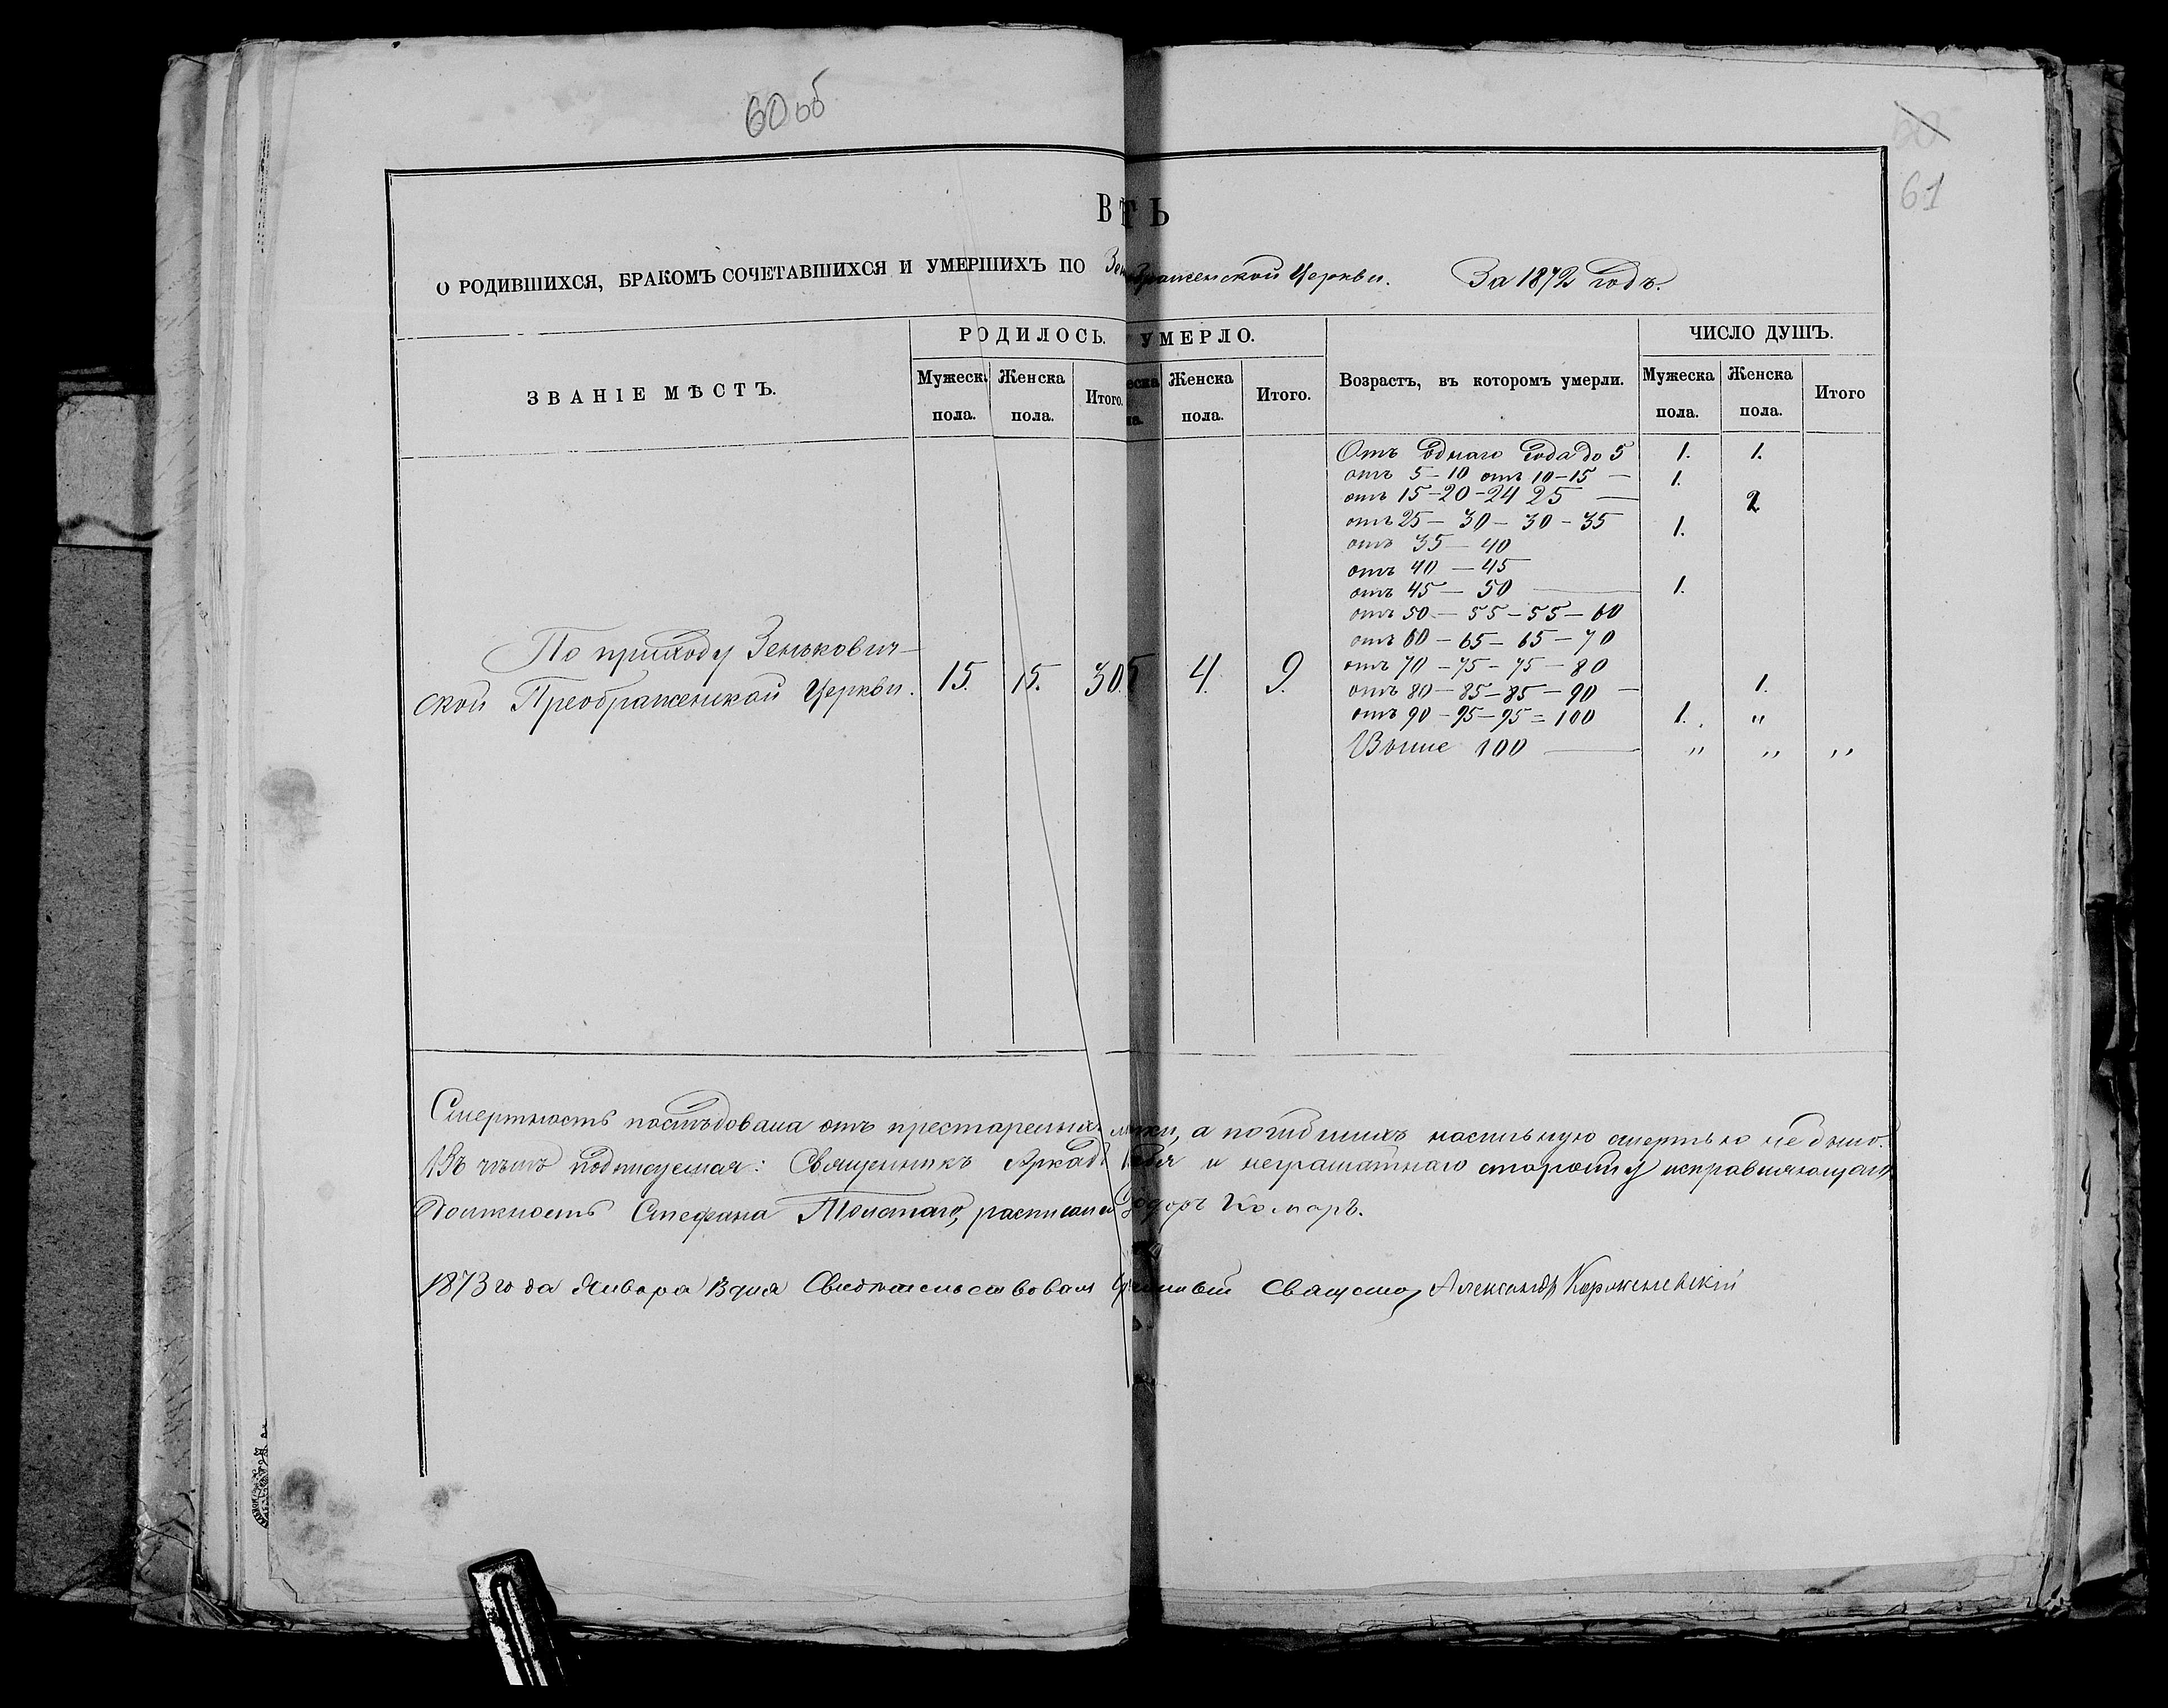 60 об
61
О РОДИВШИХСЯ, БРАКОМЪ СОЧЕТАВШИХСЯ И УМЕРШИХЪ ПО Церкви. За 1872 годъ.
РОДИЛОСЬ. УМЕРЛО. ЧИСЛО ДУШЪ.
ЗВАНІЕ МѢСТЪ. Мужеск Женска Итого. Женска Итого. Возрастъ, въ которомъ умерли. Мужеска Женска Итого
пола. пола. пола. пола. пола.
Отъ однаго года до 5 1. 1.
отъ 5 - 10 отъ 10 - 15 — 1.
отъ 15 - 20 - 24 25 — 2
отъ 25 - 30 - 30 - 35 1.
отъ 35 - 40
отъ 40 - 45
отъ 45 - 50 — 1.
отъ 50 - 55 - 55 - 60
отъ 60 - 65 - 65 - 70
отъ 70 - 75 - 75 - 80
отъ 80 - 85 - 85 - 90 — 1.
отъ 90 - 95 - 95 = 100 1. "
Выше 100 — " " "
По приходу Зенькович-
ской Преображенской Церкви. 15. 15. 30. 5 4. 9.
Смертность послѣдовала отъ престарелыхъ а погибшихъ насильную смертью не было.
Въ чемъ подписуемся: Священникъ и неграматнаго старосту исправляющаго
Должность Стефана Толстаго, росписался Комаръ.
1873 года Января 13 дня Свидѣтельствовалъ Священ Александръ